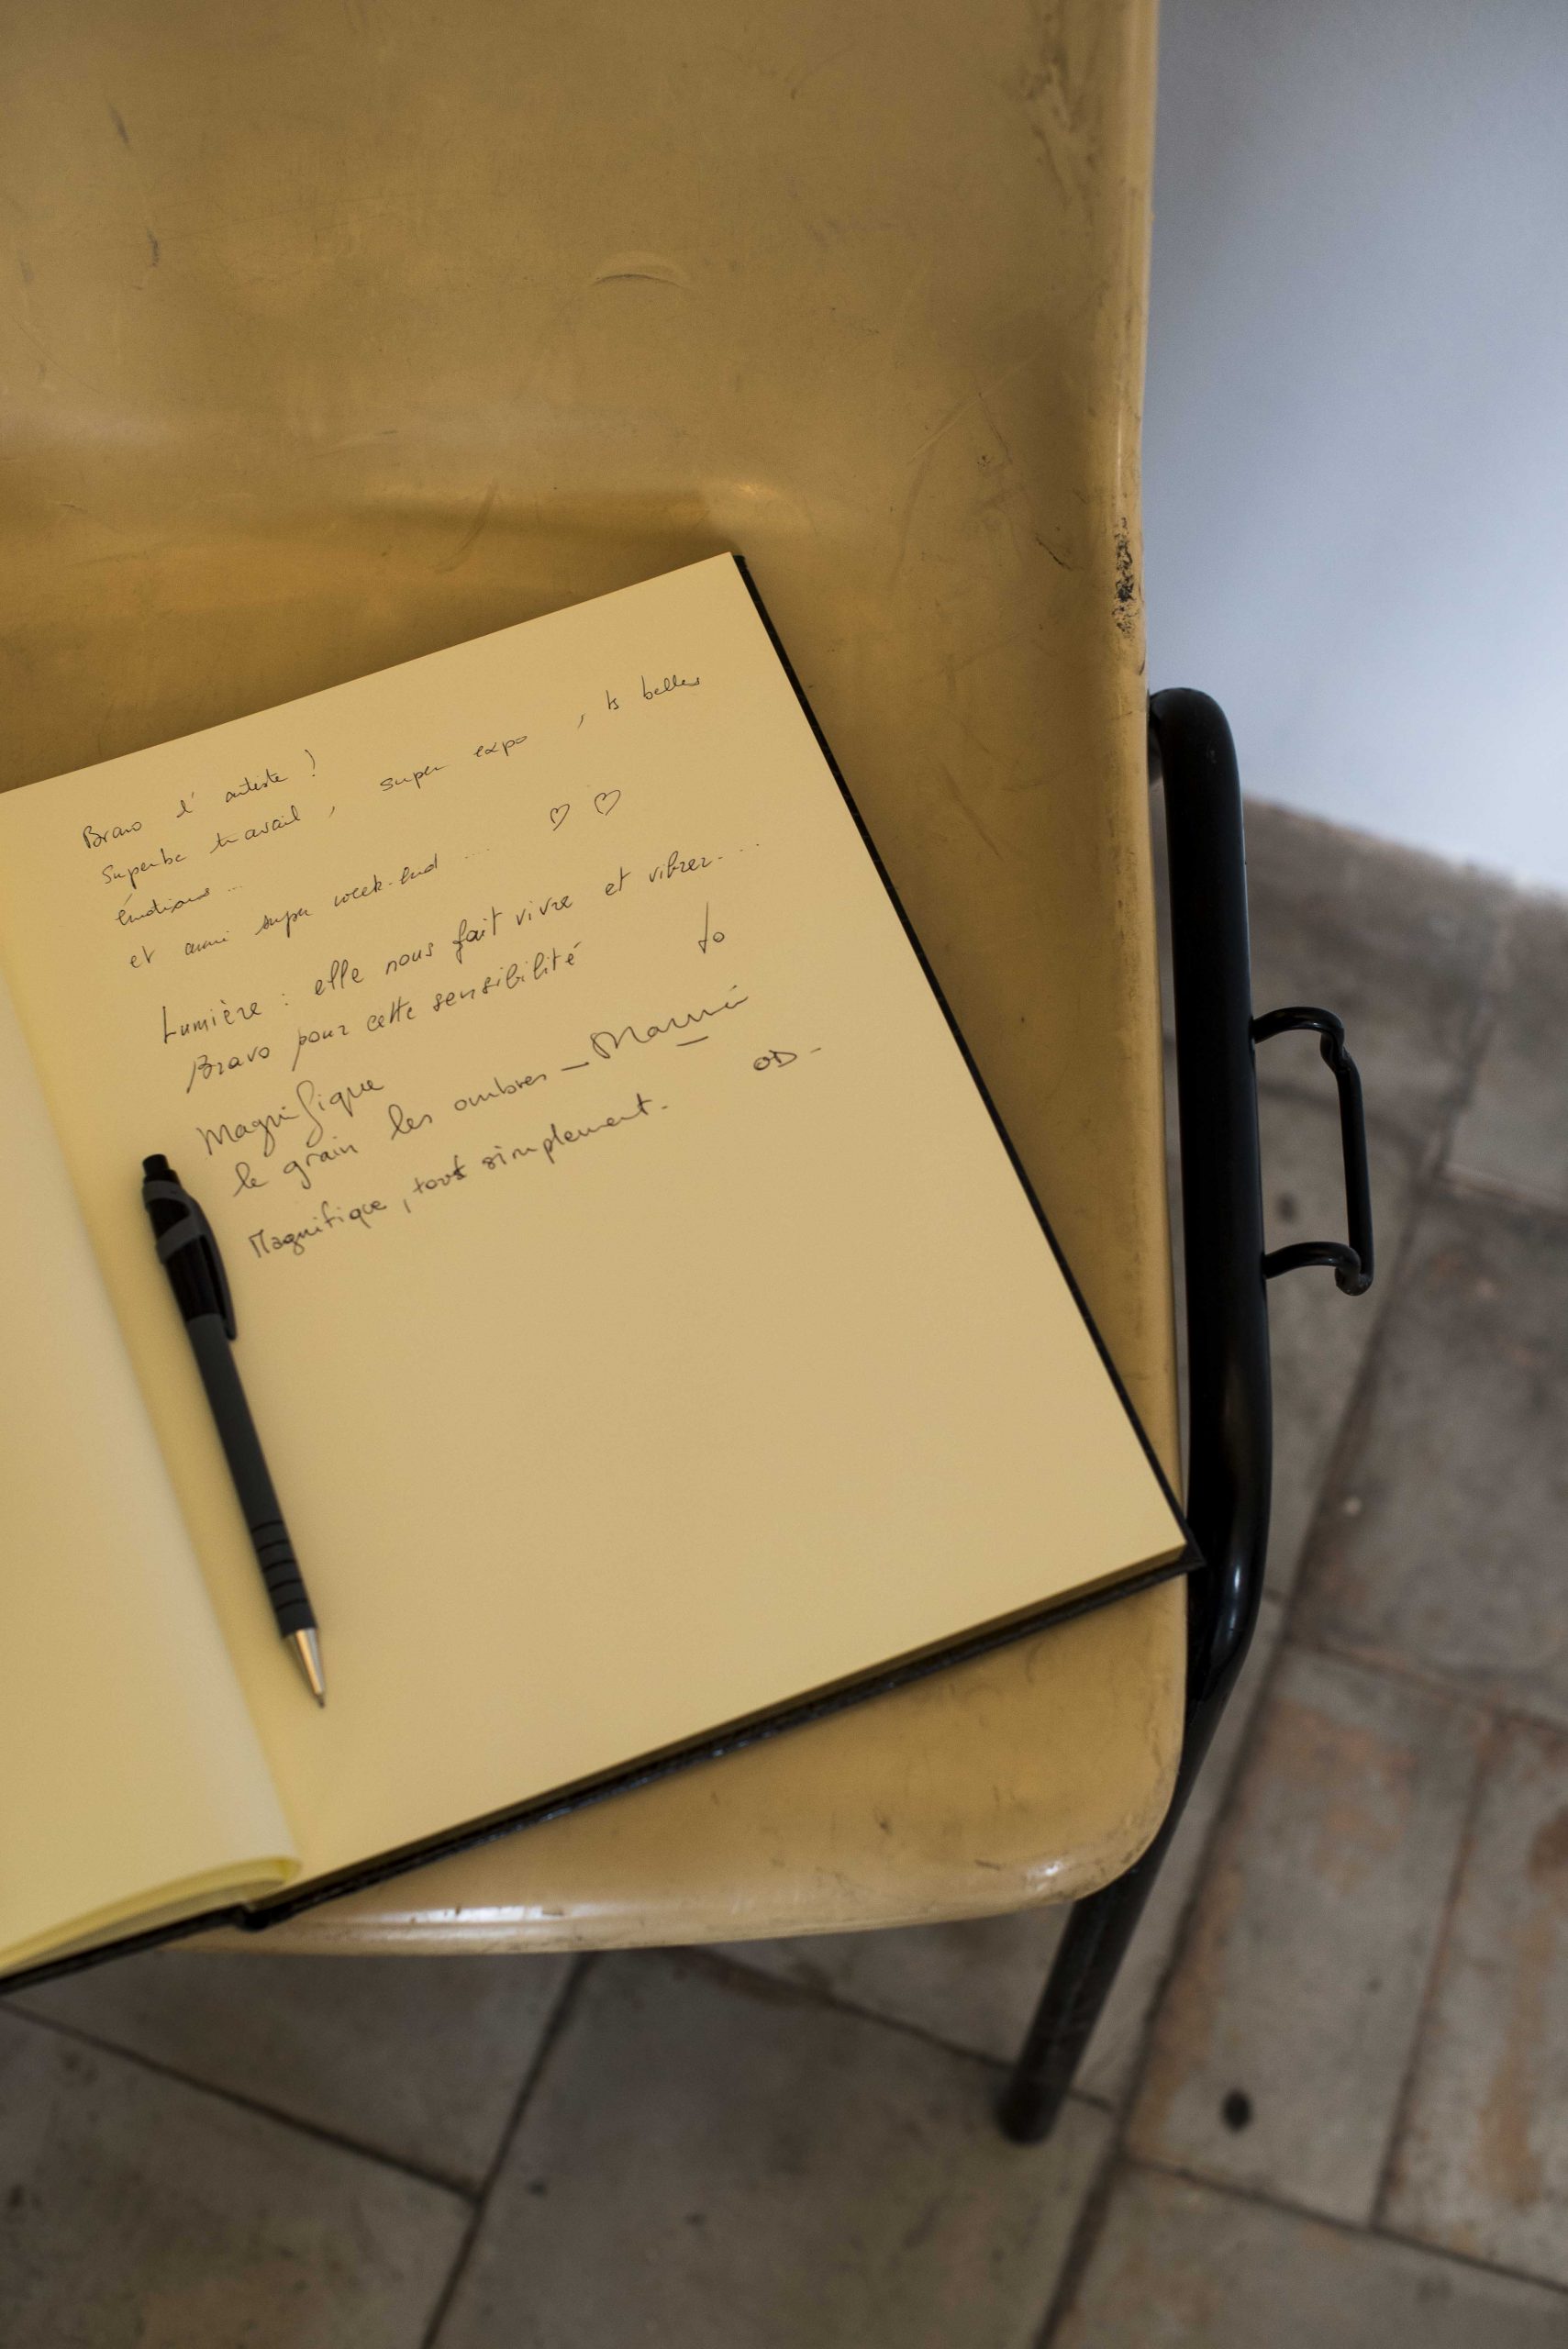 Bravo l'artiste !
Superbe travail, super expo, ts belles
émotions ...
et aussi super week-end .... ♡ ♡
Lumière : elle nous fait vivre et vibrer....
Bravo pour cette sensibilité
Magnifique
le grain les ombres —
Magnifique, tout simplement. OD -